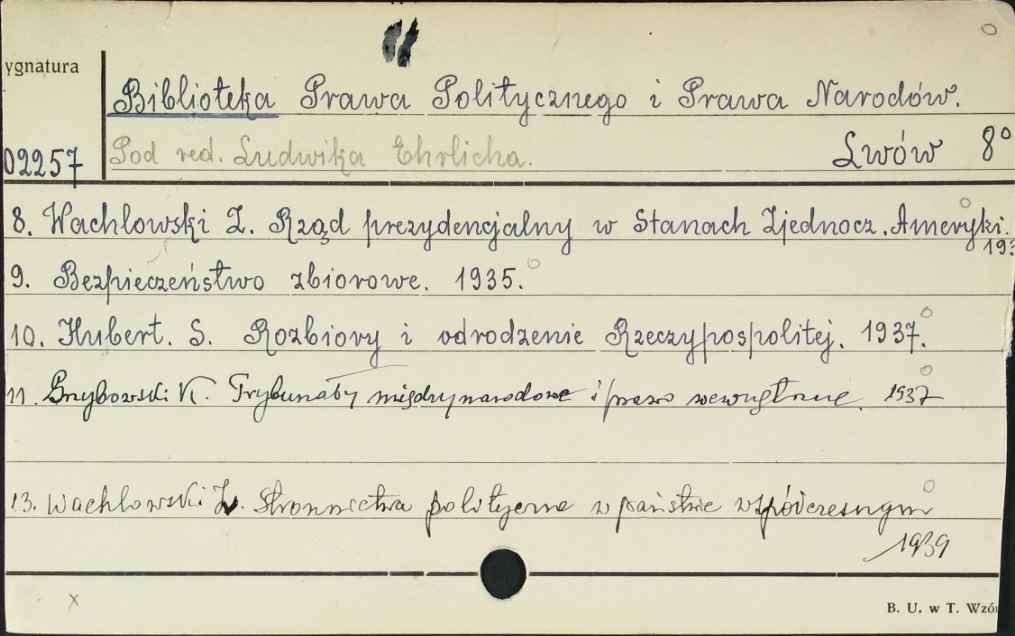 ygnatura
Biblioteka Prawa Politycznego i Prawa Narodów.
02257 Pod red. Ludwika Ehrlicha. Lwów 8°
8. Wachlowski Z. Rząd prezydencjalny w Stanach Zjednocz. Ameryki.
193
9. Bezpieczeństwo zbiorowe. 1935.
10. Hubert. S. Rozbiory i odrodzenie Rzeczypospolitej. 1937.
11. Grzybowski K. Trybunały międzynarodowe i prawo wewnętrzne. 1937
13. Wachlowski Z. Stronnictwa polityczne w państwie współczesnym
1939
x
B. U. w T. Wzór